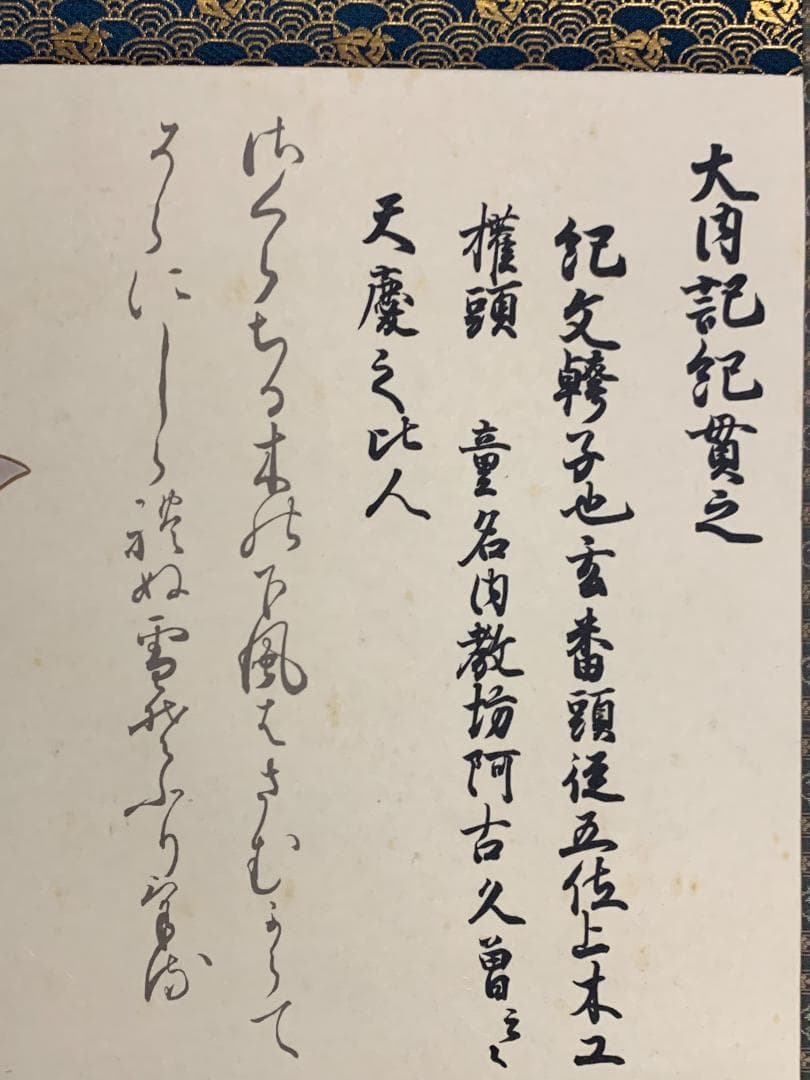 大内記紀貫之
紀文幹子也玄番頭従五位上木工
権頭　童名内教坊阿古久曽云々
天慶之比人
佐くらちる木能下風はさむからて
そらにしら禮ぬ雪曽ふり介る